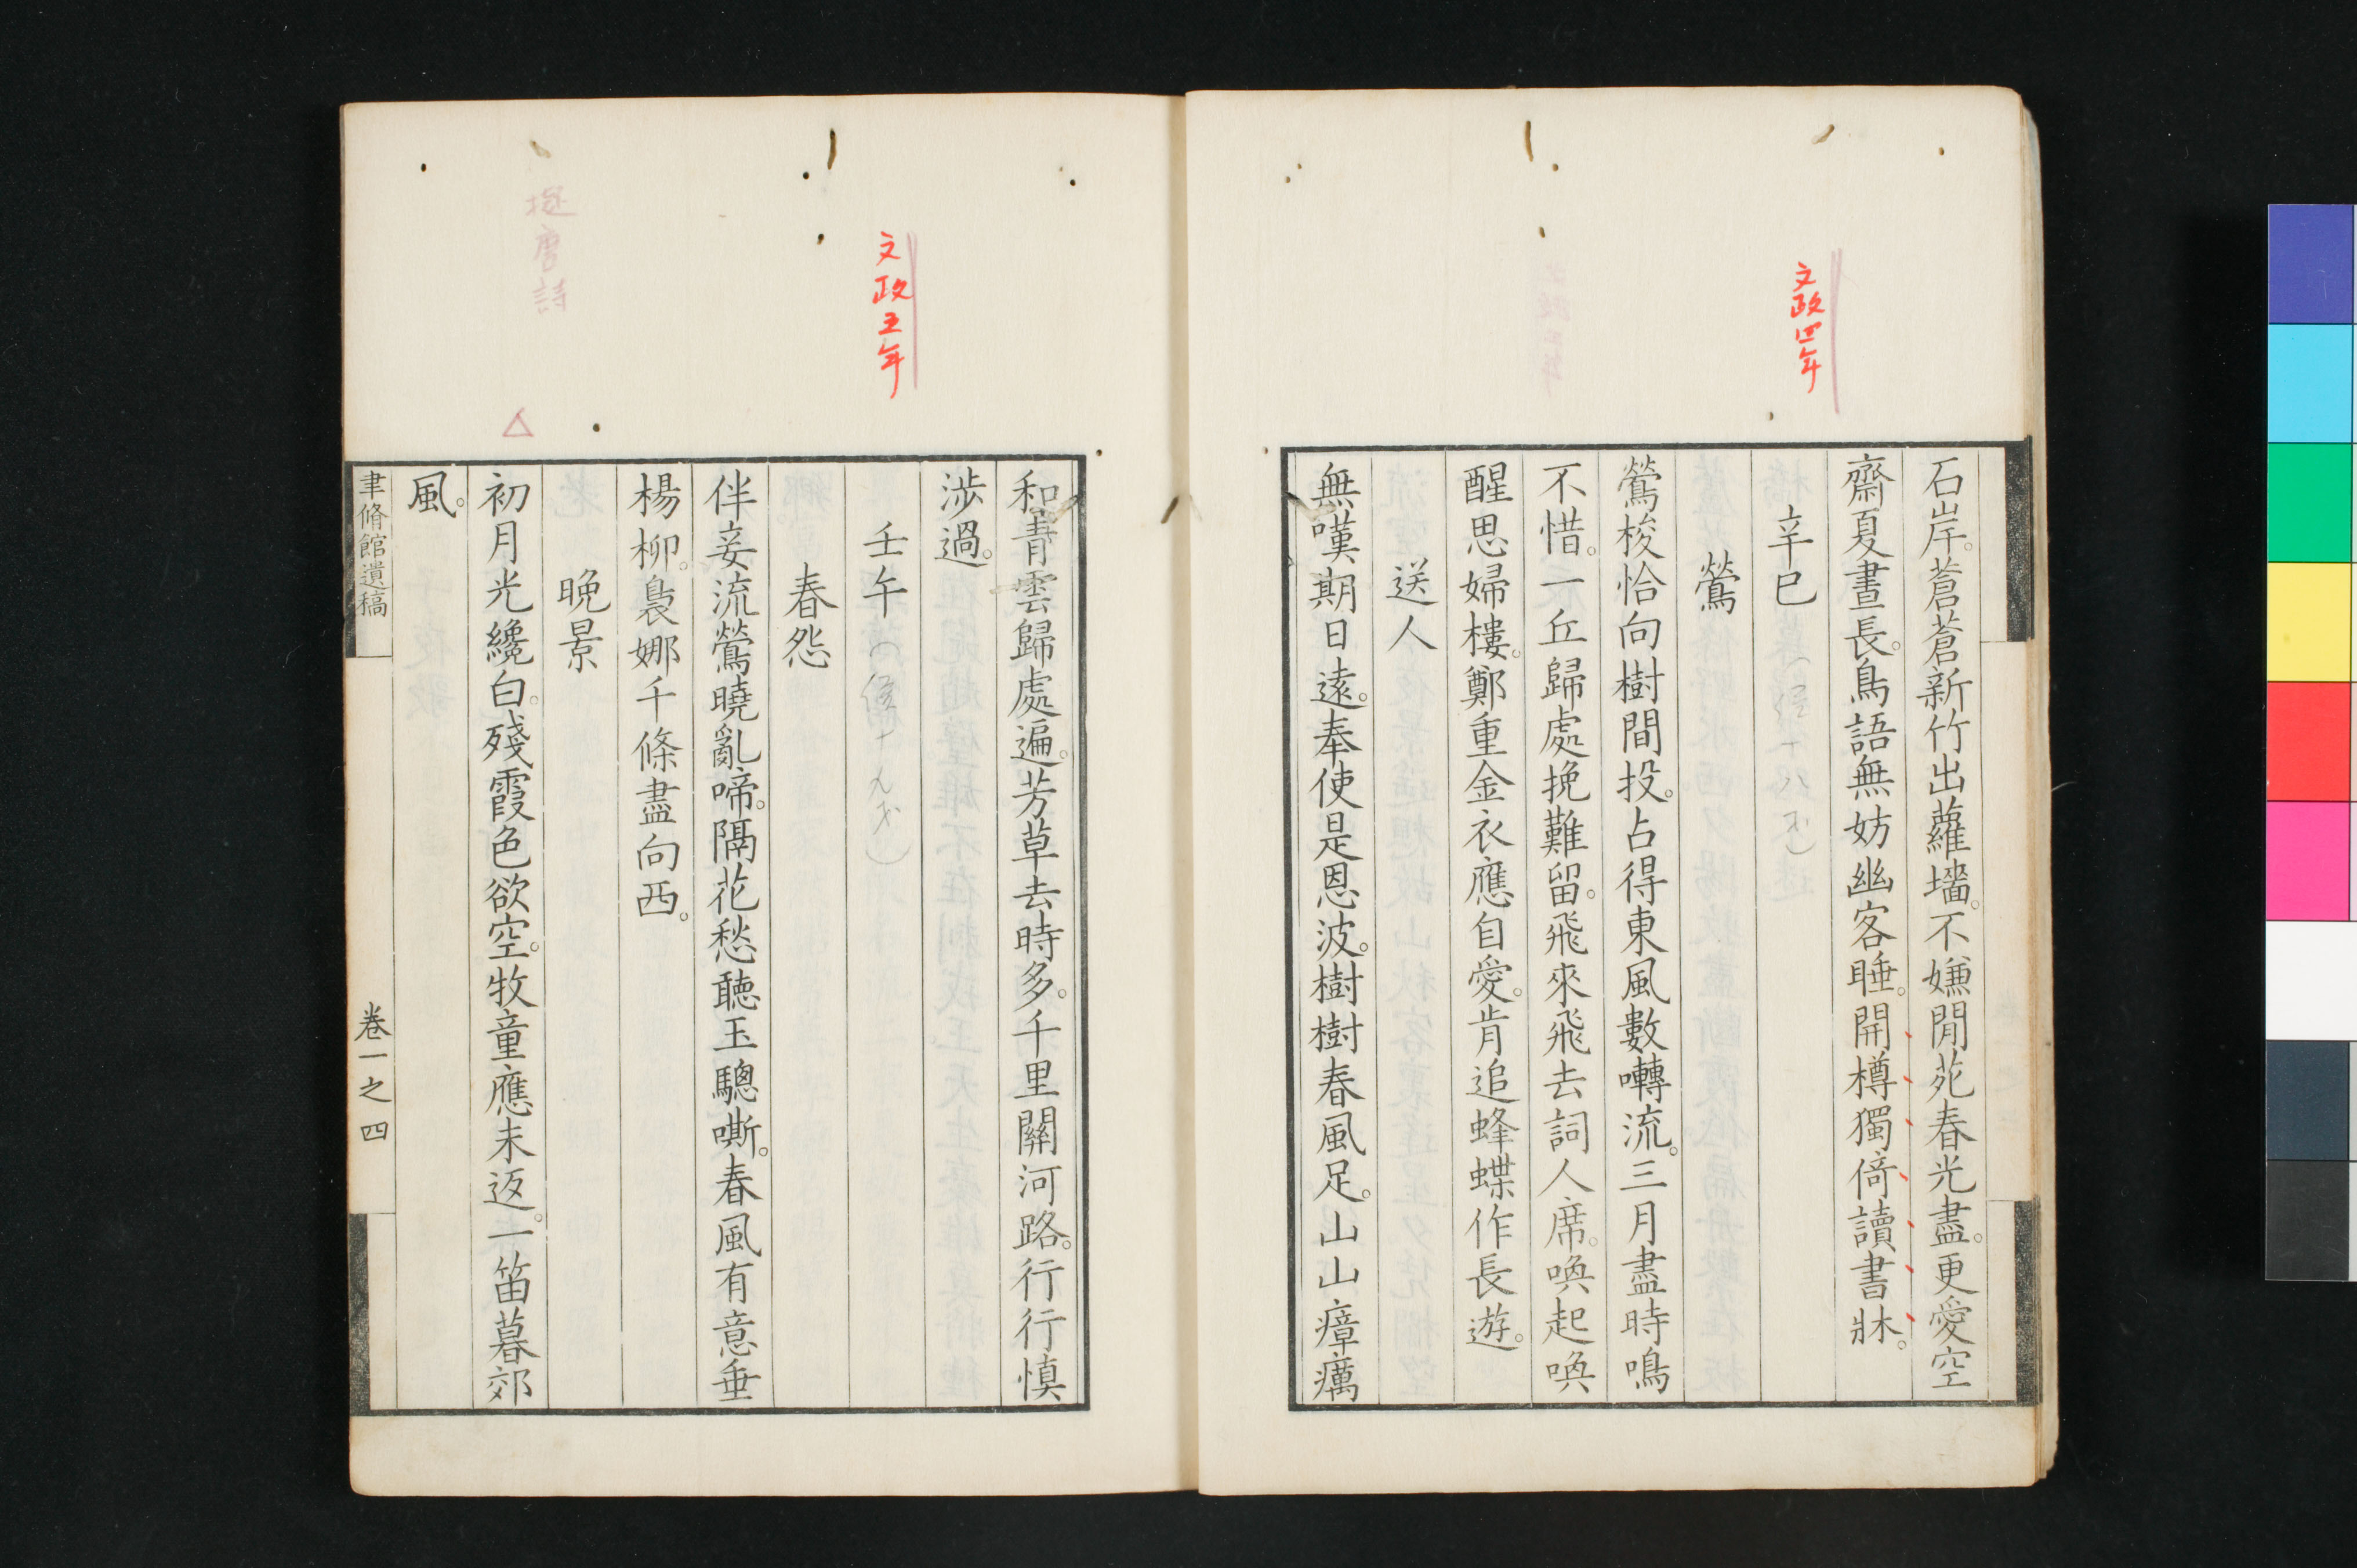 文政四年
石岸。蒼蒼新竹出蘿墻。不嫌閒苑春光盡。更愛空
齋夏晝長。鳥語無妨幽客睡。開樽獨倚讀書牀。
辛巳
鶯
鶯梭恰向樹間投。占得東風數囀流。三月盡時鳴
不惜。一丘歸處挽難留。飛來飛去詞人席。喚起喚
醒思婦樓。鄭重金衣應自愛。肯追蜂蝶作長遊。
送人
無嘆期日遠。奉使是恩波。樹樹春風足。山山瘴癘
文政五年
和。青雲歸處遍。芳草去時多。千里關河路。行行慎
涉過。
壬午
春怨
伴妾流鶯曉亂啼。隔花愁聽玉驄嘶。春風有意垂
楊柳。裊娜千條盡向西。
晚景
擬唐詩
△
初月光纔白。殘霞色欲空。牧童應未返。一笛暮郊
風。
聿脩館遺稿
卷一之四